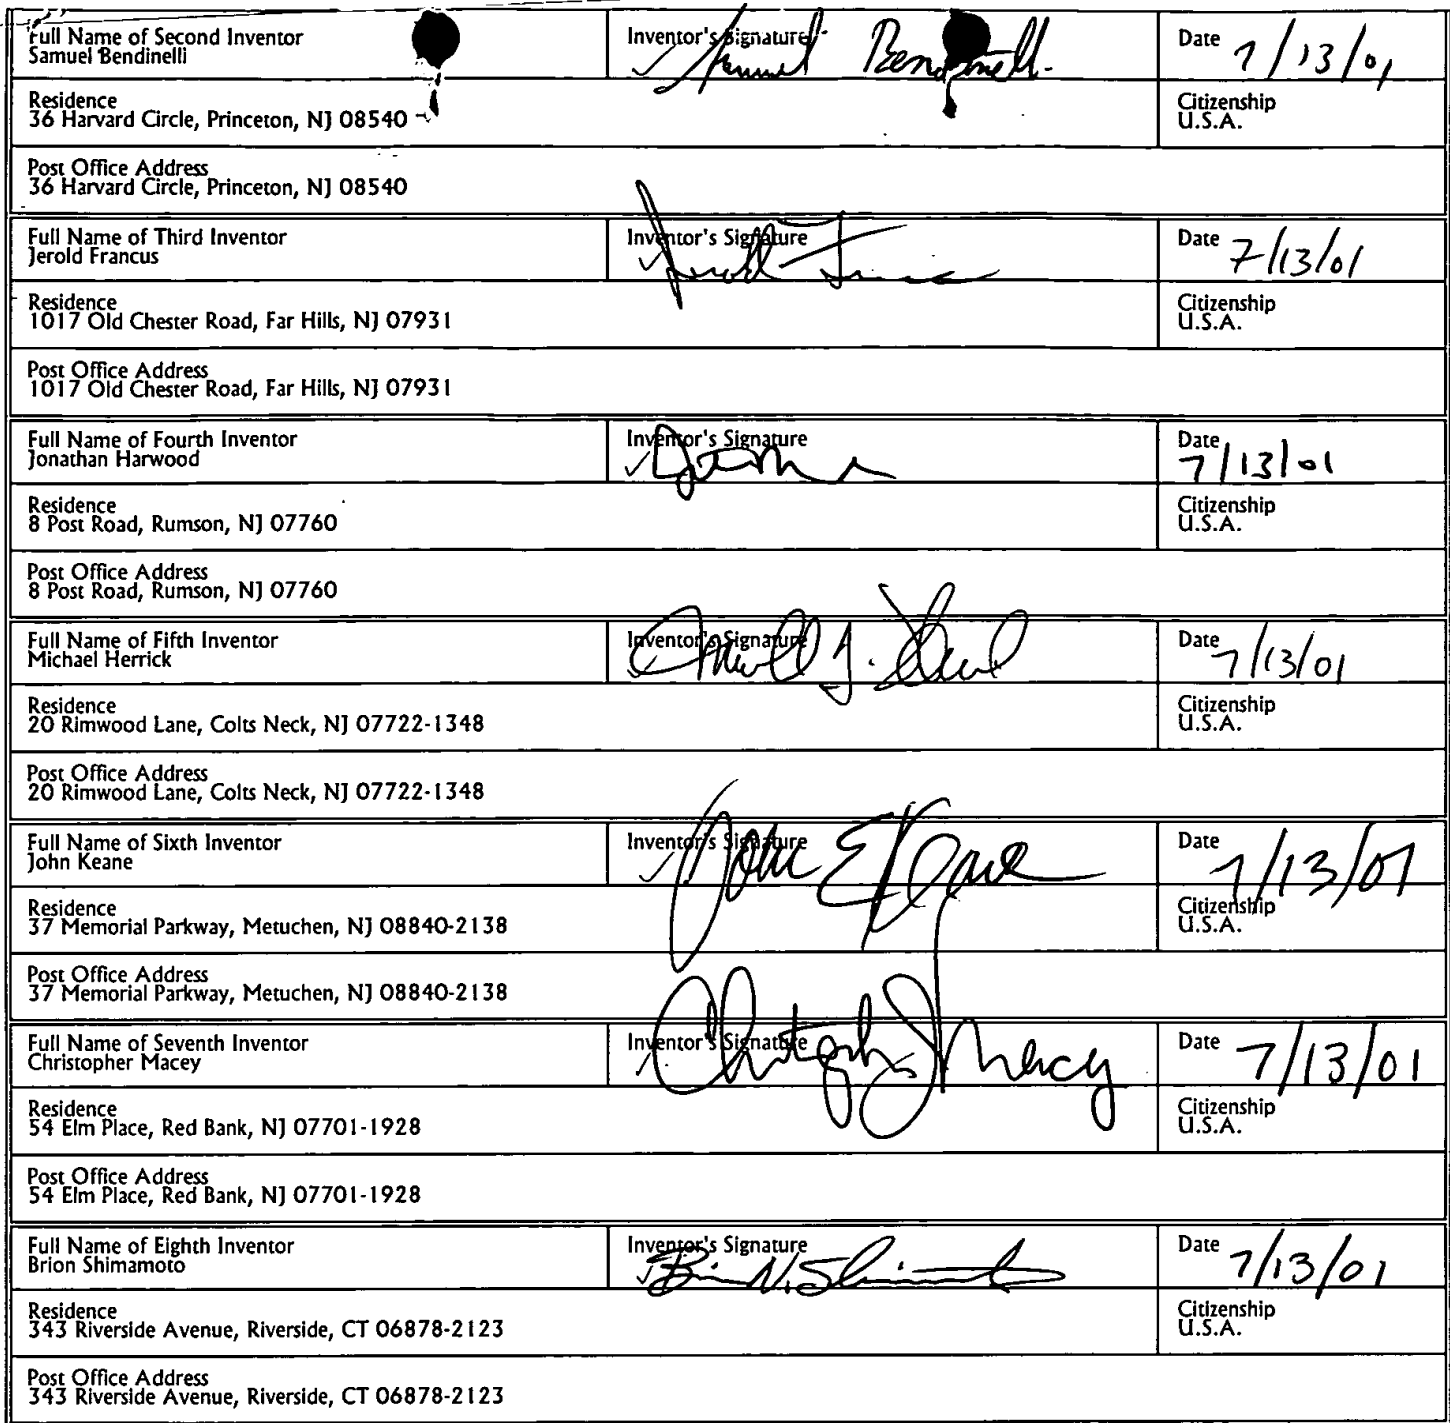 Full Name of Second Inventor
Samuel Bendinelli
Inventor's Signature
Samuel Bendinelli
Date 7/13/01
Residence
36 Harvard Circle, Princeton, NJ 08540
Citizenship
U.S.A.
Post Office Address
36 Harvard Circle, Princeton, NJ 08540
Full Name of Third Inventor
Jerold Francus
Inventor's Signature
Date 7/13/01
Residence
1017 Old Chester Road, Far Hills, NJ 07931
Citizenship
U.S.A.
Post Office Address
1017 Old Chester Road, Far Hills, NJ 07931
Full Name of Fourth Inventor
Jonathan Harwood
Inventor's Signature
Date
7/13/01
Residence
8 Post Road, Rumson, NJ 07760
Citizenship
U.S.A.
Post Office Address
8 Post Road, Rumson, NJ 07760
Full Name of Fifth Inventor
Michael Herrick
Inventor's Signature
Date 7/13/01
Residence
20 Rimwood Lane, Colts Neck, NJ 07722-1348
Citizenship
U.S.A.
Post Office Address
20 Rimwood Lane, Colts Neck, NJ 07722-1348
Full Name of Sixth Inventor
John Keane
Inventor's Signature
John E Keane
Date 7/13/01
Residence
37 Memorial Parkway, Metuchen, NJ 08840-2138
Citizenship
U.S.A.
Post Office Address
37 Memorial Parkway, Metuchen, NJ 08840-2138
Full Name of Seventh Inventor
Christopher Macey
Inventor's Signature
Christopher J Macey
Date 7/13/01
Residence
54 Elm Place, Red Bank, NJ 07701-1928
Citizenship
U.S.A.
Post Office Address
54 Elm Place, Red Bank, NJ 07701-1928
Full Name of Eighth Inventor
Brion Shimamoto
Inventor's Signature
Brion N. Shimamoto
Date 7/13/01
Residence
343 Riverside Avenue, Riverside, CT 06878-2123
Citizenship
U.S.A.
Post Office Address
343 Riverside Avenue, Riverside, CT 06878-2123